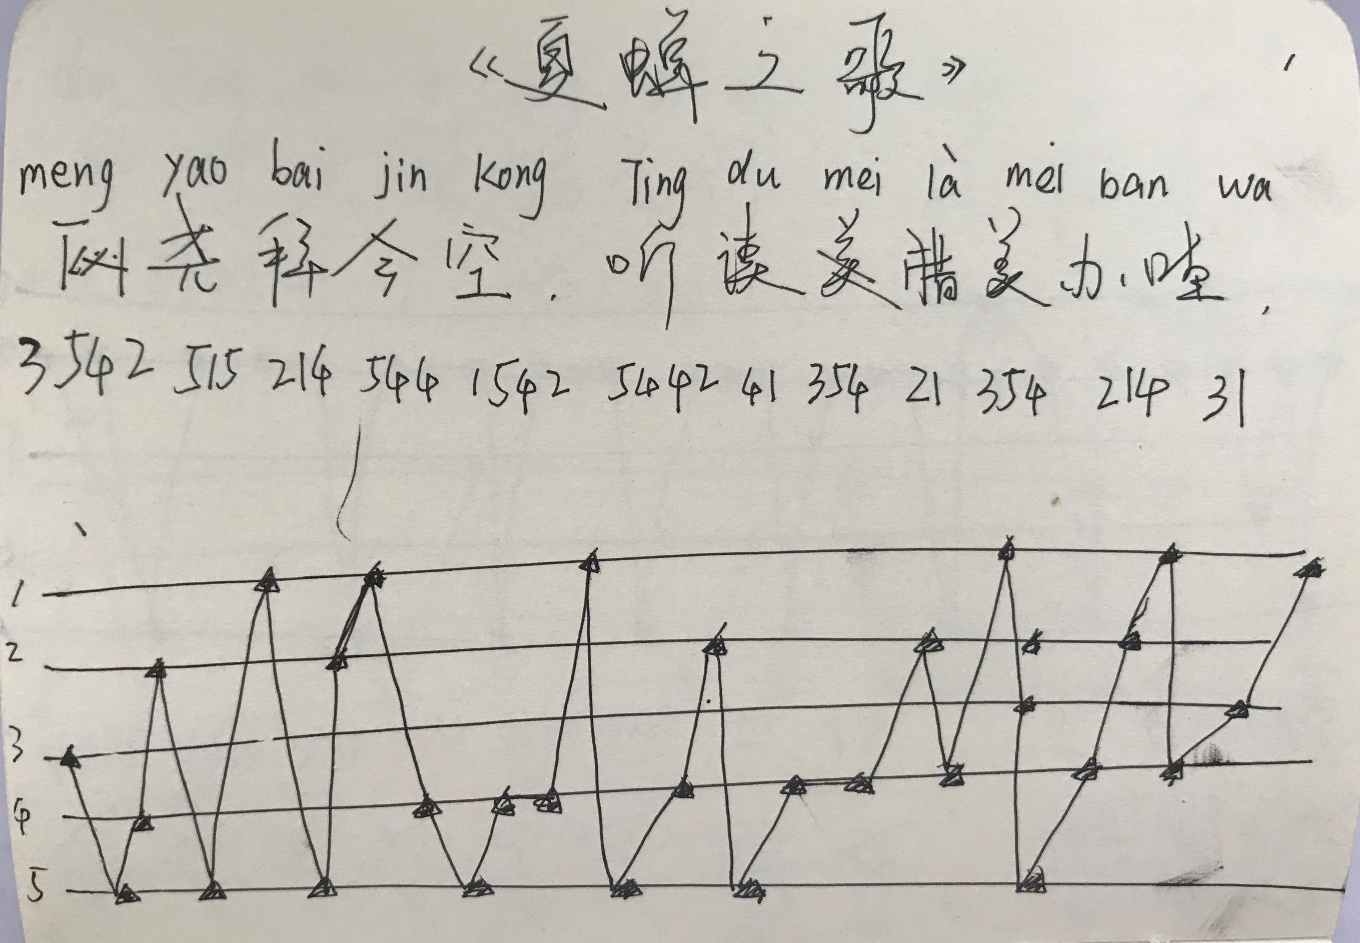 《夏蝉之歌》
meng yao bai jin kong Ting du mei là mei ban wa
尧 释 今 空. 听 读 美 腊 美 办. 哇.
3542 515 214 544 1542 5442 41 354 21 354 214 31
1
2
3
4
5